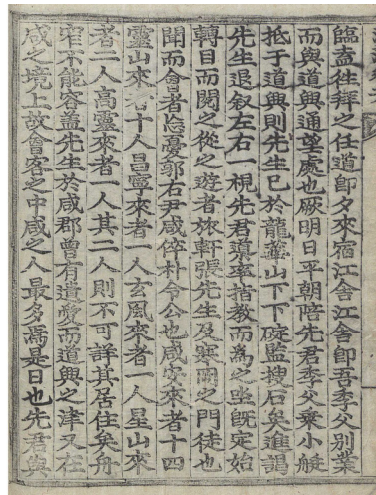 臨盍徃拜之任道卽夕來宿江舍江舍卽吾季父別業
而與道興通望處也厥明日平朝陪先君季父乘小艇
抵于道興則先生已於龍華山下下碇監搜石矣進謁
先生退敘左右一梘先君導率指教而為之坐旣定始
轉目而閱之從之遊者旅軒張先生及寒岡之門徒也
聞而會者忘憂郭右尹咸倅朴令公也咸安來者十四
靈山來者十人昌寧來者一人玄風來者一人星山來
者一人高靈來者一人其二人則不可詳其居住矣舟
窄不能容盖先生於咸郡曾有遺愛而道興之津又在
咸之境上故會客之中咸之人最多焉是日也先君與